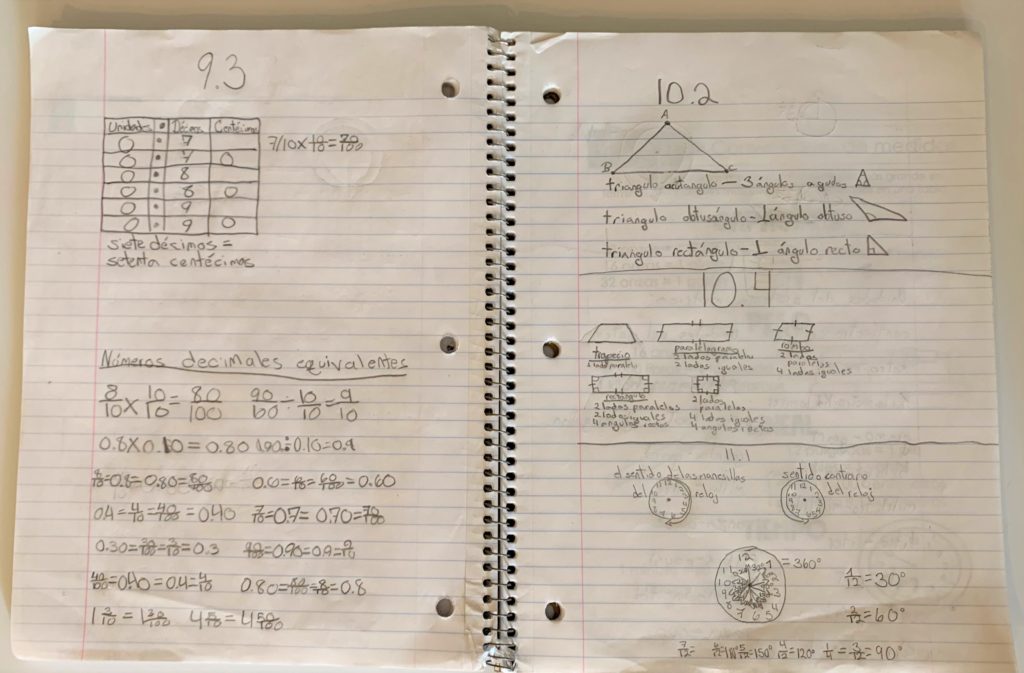 9.3
Unidades . Décimas Centécimas
0 . 7
0 . 7 0
0 . 8
0 . 8 0
0 . 9
0 . 9 0
7/10 × 10/10 = 70/100
siete décimos =
setenta centécimos
Números decimales equivalentes
8/10 × 10/10 = 80/100 90/100 ÷ 10/10 = 9/10
0.8 × 0.10 = 0.80 ÷ 0.10 = 0.9
8/10 = 0.8 = 0.80 = 80/100 0.6 = 6/10 = 60/100 = 0.60
0.4 = 4/10 = 40/100 = 0.40 7/10 = 0.7 = 0.70 = 70/100
0.30 = 30/100 = 3/10 = 0.3 90/100 = 0.90 = 0.9 = 9/10
40/100 = 0.40 = 0.4 = 4/10 0.80 = 80/100 = 8/10 = 0.8
1 3/10 = 1 30/100 4 5/10 = 4 50/100
10.2
A
B C
triangulo acutangulo — 3 ángulos agudos
triangulo obtusángulo - 1 ángulo obtuso
triangulo rectángulo - 1 ángulo recto
10.4
trapecio
paralelogramo
2 lados iguales
rombo
2 lados
paralelos
4 lados iguales
rectángulo
2 lados paralelos
2 lados iguales
4 angulos rectos
2 lados
paralelos
4 lados iguales
4 angulos rectos
11.1
el sentido de las manesillas
del reloj
sentido contrario
del reloj
12 11 10 9 8 7 6 5 4 3 1
= 360°
1/12 = 30°
2/12 = 60°
7/12 = 5/12 = 150° 4/12 = 120° 1/4 = 3/12 = 90°